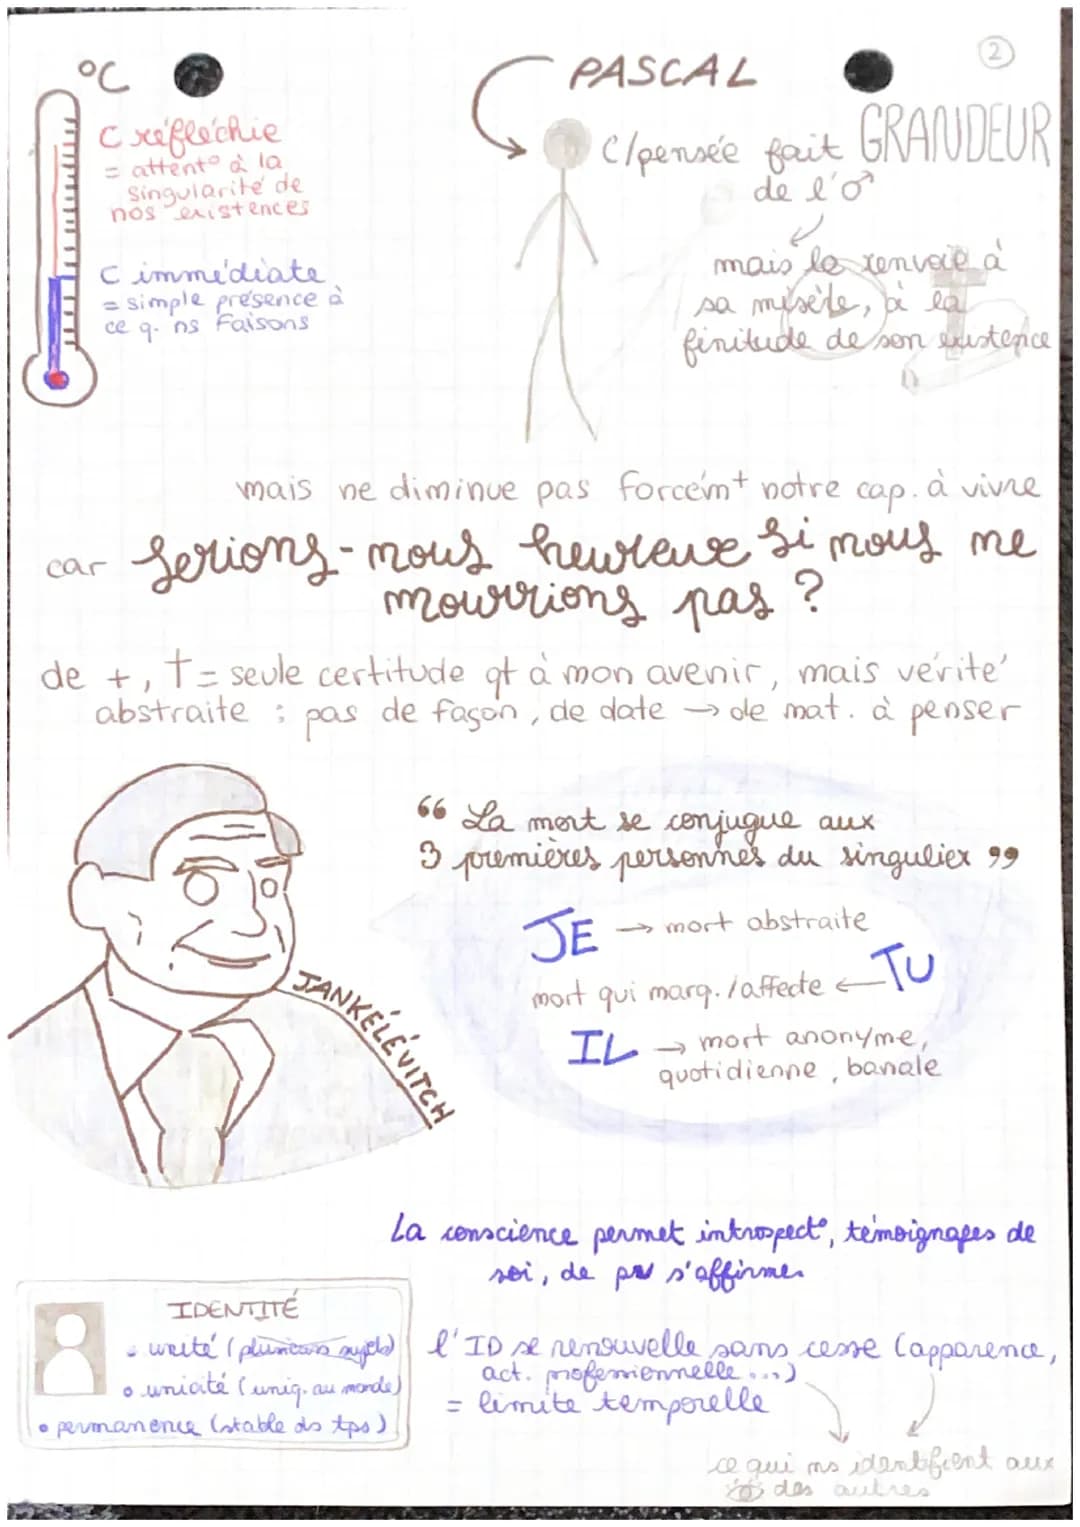 2
°C
PASCAL
C réfléchie
= attent° à la
singularité de
nos existences
C/pensée fait GRANDEUR
de l'♂
C immédiate
= simple présence à
ce q. ns faisons
mais le renvoie à
sa misère, à la
finitude de son existence
mais ne diminue pas forcémt notre cap. à vivre
car serions-nous heureux si nous ne
mourrions pas ?
de +, † = seule certitude qt à mon avenir, mais vérité
abstraite : pas de façon, de date → de mat. à penser
“ La mort se conjugue aux
3 premières personnes du singulier ”
JE → mort abstraite
mort qui marq./affecte ← TU
IL → mort anonyme,
quotidienne, banale
JANKÉLÉVITCH
La conscience permet introspect°, témoignages de
soi, de pv s'affirmer
IDENTITÉ
• unité (plusieurs sujets)
• unicité (uniq. au monde)
• permanence (stable ds tps)
l'ID se renouvelle sans cesse (apparence,
act. professionnelle...)
= limite temporelle
ce qui ns identifient aux
des autres